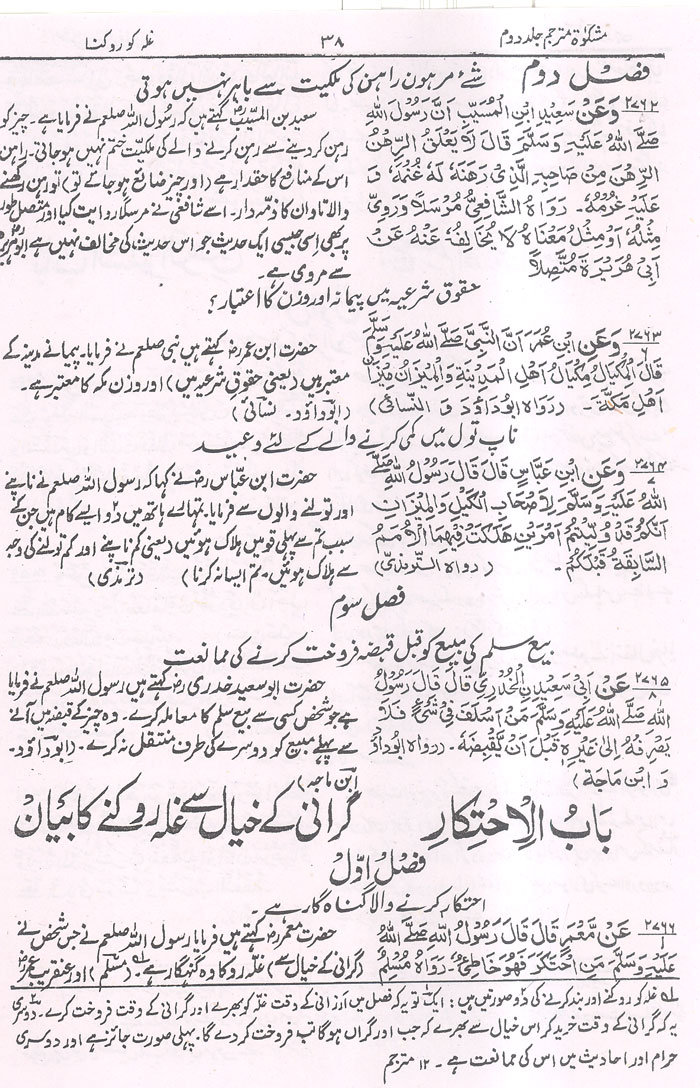 مشکوٰۃ مترجم جلد دوم
۳۸
غلہ کو روکنا
فصل دوم
شئے مرہون راہن کی ملکیت سے باہر نہیں ہوتی
۲۷۶۲ وَعَنْ سَعِيْدِ ابْنِ الْمُسَيِّبِ اَنَّ رَسُوْلَ اللهِ
صَلَّى اللهُ عَلَيْهِ وَسَلَّمَ قَالَ لَا يَغْلَقُ الرَّهْنُ
الرَّهْنَ مِنْ صَاحِبِهِ الَّذِيْ رَهَنَهٗ لَهٗ غُنْمُهٗ وَ
عَلَيْهِ غُرْمُهٗ۔ رَوَاهُ الشَّافِعِيُّ مُرْسَلًا وَرُوِيَ
مِثْلُهٗ اَوْ مِثْلُ مَعْنَاهُ لَا يُخَالِفُهٗ عَنْهُ عَنْ
اَبِيْ هُرَيْرَةَ مُتَّصِلًا
سعید بن المسیبؓ کہتے ہیں کہ رسُول اللہ صلعم نے فرمایا ہے۔ چیز کو
رہن کر دینے سے رہن کرنے والے کی ملکیت ختم نہیں ہو جاتی۔ راہن
اس کے منافع کا حقدار ہے (اور چیز ضائع ہو جائے تو) تو رہن رکھنے
والا تاوان کا ذمہ دار۔ اسے شافعی نے مرسلًا روایت کیا اور متصل طور
پر بھی اسی جیسی ایک حدیث جو اس حدیث کی مخالف نہیں ہے ابوہریرہ
سے مروی ہے۔
حقوق شرعیہ میں پیمانہ اور وزن کا اعتبار؟
۲۷۶۳ وَعَنِ ابْنِ عُمَرَ اَنَّ النَّبِيَّ صَلَّى اللهُ عَلَيْهِ وَسَلَّمَ
قَالَ الْمِكْيَالُ مِكْيَالُ اَهْلِ الْمَدِيْنَةِ وَالْمِيْزَانُ مِيْزَانُ
اَهْلِ مَكَّةَ۔ (رَوَاهُ اَبُوْدَاوُدَ وَ النَّسَائِيُّ)
حضرت ابن عمرؓ کہتے ہیں نبی صلعم نے فرمایا۔ پیمانے مدینہ کے
معتبر ہیں (یعنی حقوق شرعیہ میں) اور وزن مکہ کا معتبر ہے۔
(ابوداؤد۔ نسائی)
ناپ تول میں کمی کرنے والے کے لئے وعید
۲۷۶۴ ۷ وَعَنِ ابْنِ عَبَّاسٍ قَالَ قَالَ رَسُوْلُ اللهِ صَلَّى
اللهُ عَلَيْهِ وَسَلَّمَ لِاَصْحَابِ الْكَيْلِ وَالْمِيْزَانِ
اِنَّكُمْ قَدْ وُلِّيْتُمْ اَمْرَيْنِ هَلَكَتْ فِيْهِمَا الْاُمَمُ
السَّابِقَةُ قَبْلَكُمْ۔ (رواه الترمذي)
حضرت ابن عباسؓ نے کہا کہ رسول اللہ صلعم نے ناپنے
اور تولنے والوں سے فرمایا۔ تمہارے ہاتھ میں دو ایسے کام ہیں جن کے
سبب تم سے پہلی قومیں ہلاک ہوئیں (یعنی کم ناپنے اور کم تولنے کی وجہ
سے ہلاک ہوئیں۔ تم ایسا نہ کرنا) (ترمذی)
فصل سوم
بیع سلم کی مبیع کو قبل قبضہ فروخت کرنے کی ممانعت
۲۷۶۵ ۸ عَنْ اَبِيْ سَعِيْدِنِ الْخُدْرِيِّ قَالَ قَالَ رَسُوْلُ
اللهِ صَلَّى اللهُ عَلَيْهِ وَسَلَّمَ مَنْ اَسْلَفَ فِيْ شَيْءٍ فَلَا
يَصْرِفْهُ اِلٰى غَيْرِهٖ قَبْلَ اَنْ يَّقْبِضَهٗ۔ (رواه ابوداؤد
وَ ابْنُ مَاجَةَ)
حضرت ابوسعید خدریؓ کہتے ہیں رسول اللہ صلعم نے فرمایا
ہے جو شخص کسی سے بیع سلم کا معاملہ کرے۔ وہ چیز کے قبضہ میں آنے
سے پہلے مبیع کو دوسرے کی طرف منتقل نہ کرے۔ (ابوداؤد۔
ابن ماجہ)
بَابُ الْاِحْتِكَارِ
گرانی کے خیال سے غلہ روکنے کا بیان
فصل اوّل
احتکار کرنے والا گناہ گار ہے۔
۲۷۶۶ ۱ عَنْ مَّعْمَرٍ قَالَ قَالَ رَسُوْلُ اللهِ صَلَّى اللهُ
عَلَيْهِ وَسَلَّمَ مَنِ احْتَكَرَ فَهُوَ خَاطِئٌ۔ رَوَاهُ مُسْلِمٌ
حضرت معمرؓ کہتے ہیں فرمایا رسول اللہ صلعم نے جس شخص نے
(گرانی کے خیال سے) غلہ روکا وہ گنہگار ہے۔ (مسلم) اور عنقریب عمرؓ
لہ غلہ کو روکنے اور بند کرنے کی دو صورتیں ہیں: ایک تو یہ کہ فصل میں ارزانی کے وقت غلہ کو بھرے اور گرانی کے وقت فروخت کرے۔ دوسری
یہ کہ گرانی کے وقت خرید کر اس خیال سے بھرے کہ جب اور گراں ہوگا تب فروخت کر دے گا۔ پہلی صورت جائز ہے اور دوسری
حرام اور احادیث میں اس کی ممانعت ہے۔ ۱۲ مترجم